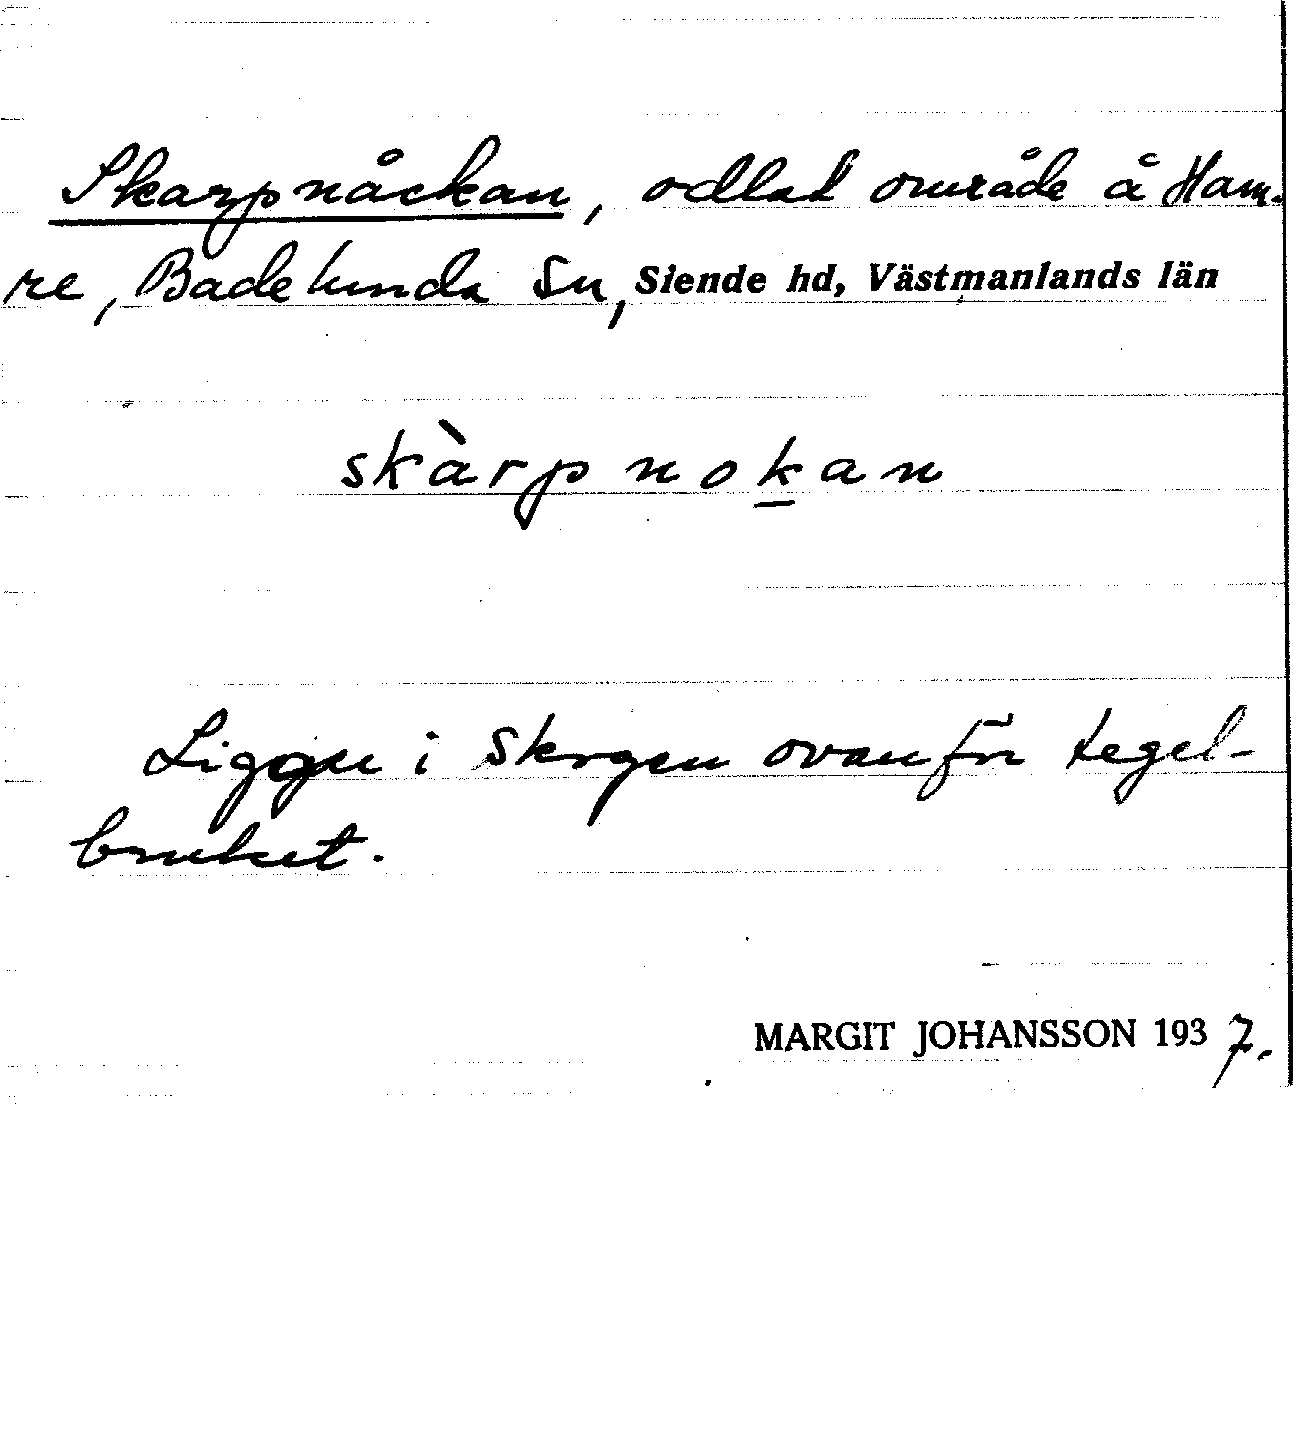 Skarpnåckan, odlat område å Ham-
re, Badelunda sn, Siende hd, Västmanlands län
skàrpnokan
Ligger i skogen ovanför tegel-
bruket.
MARGIT JOHANSSON 1937.